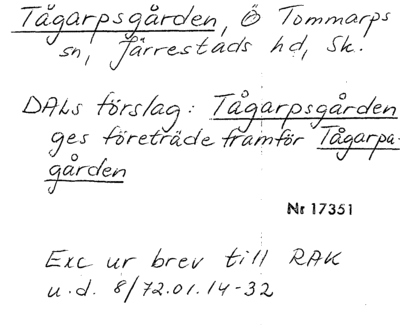 Tågarpsgården, Ö Tommarps
sn, Järrestads hd, Sk.
DALs förslag: Tågarpsgården
ges företräde framför Tågarpa-
gården
Nr 17351
Exc ur brev till RAK
u.d. 8/72.01.14-32